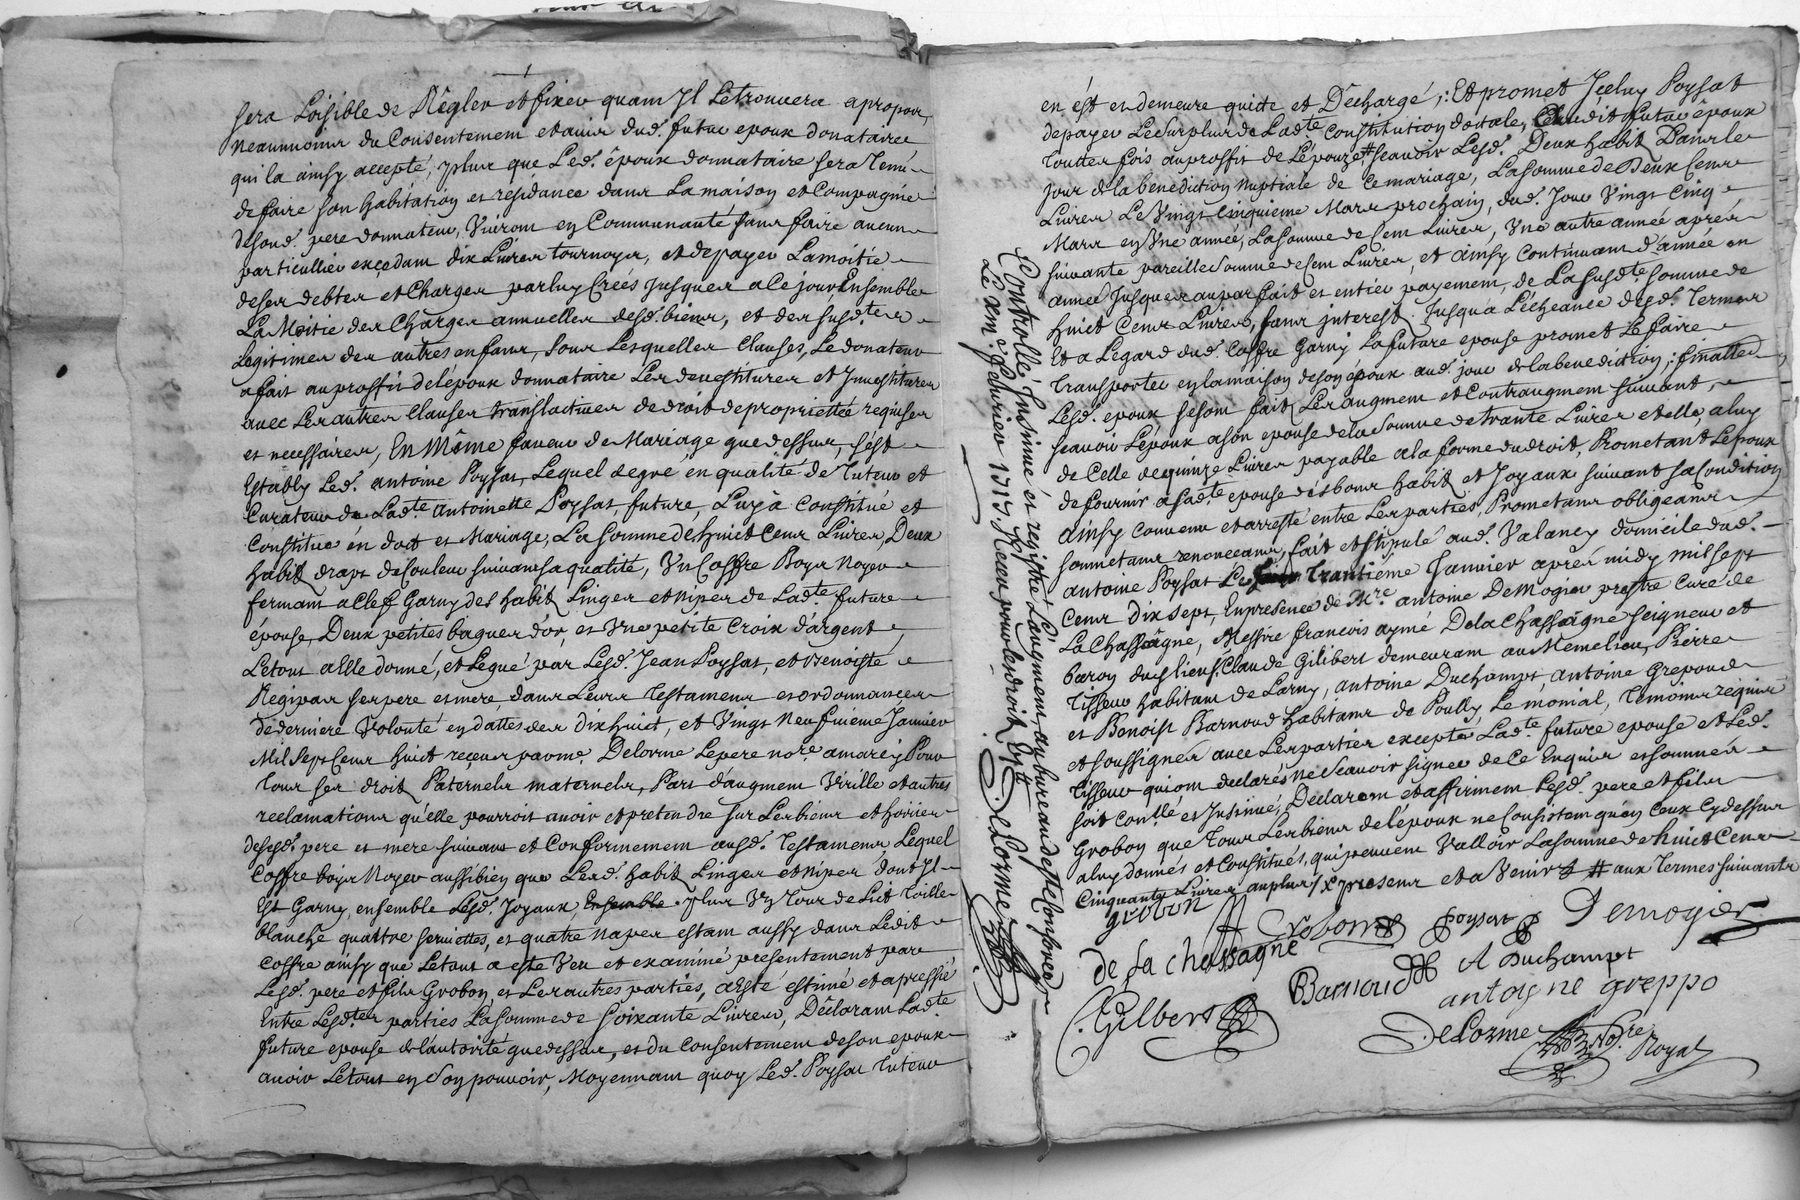 sera Loisible de Régler et fixer quam Jl Letrouvera apropor,
neaunmoins du Consentement et avis dud. futur epoux donataire
qui la ainsy accepté, plus que Led. époux donnataire sera Tenu
defaire son habitation et residance dans Lamaison et Compagnie
desond. pere donnateur, Vivront en Communauté sans faire aucun
particullier excedam dix Livres tournoys, et depayer Lamoitié
deses debtes et Charges parluy Créés Jusques a Ce jour, Ensemble
La Moitié des Charges annuelles desd. biens, et des susd.tes
Legitimes des autres enfans, sous Lesquelles Clauses, Le donateur
afait auproffit delépoux donnataire Les devestitures et Jnvestitures
avec Les autres Clauses translatives dedroit depropriettée requises
et necessaires, En Même faveur de Mariage que dessus, s'est
Estably Led. antoine Poysat, Lequel degré en qualité de Tuteur et
Curateur de Lad.te antoinette Poysat, future, Luy à Constitué et
Constitue en doct et Mariage, La somme de huict Cens Livres, Deux
habits draps deCouleur suivant sa qualité, Un Coffre Boys Noyer
fermant a Clef Garny des habits Linges et nipes de Lad.te future
épouse, Deux petites bagues d'or, et Vne petite Croix d'argent,
Letout a Elle donné, et Legué par Lesd. Jean Poysat, et Benoiste
Régipas ses pere et mere, dans Leurs Testamens et ordonnances
dederniere Volonté en dattes des dixhuict, et Vingt Neufuieme Janvier
Mil Sept Cens huict reçeus par me. Delorme Le pere no.re amarcy Pour
Tous ses droits Paternels maternels, Part d'augment Virille et autres
reclamations qu'elle pourroit avoir et pretendre sur Les biens et hoiries
desesd. pere et mere suivans et Conformement ausd. Testamens Lequel
Coffre boys Noyer aussibien que Lesd. habits Linges et nipes dont Jl
Est Garny, ensemble Lesd. Joyaux, Ensemble plus Vn Tour de Lict Toille
blanche quattre serviettes, et quatre napes estam aussy dans Ledit
Coffre ainsy que Letout a esté Veu et examiné presentement par
Lesd. pere et fils Grobon, et Les autres parties, a Esté estimé et apressié
Entre Lesd.tes parties La somme de soixante Livres, Déclaram Lad.te
future epouse de l'autorité quedessus, et du Consentement deson epoux
avoir Letout en son pouvoir, Moyennant quoy Led. Poysat Tuteur
en ést et demeure quicte et Déchargé; Et promet Jceluy Poysat
depayer Le surplus de Lad.te Constitution dottale, audit futur époux
Touttes fois auproffit de Lépouze, # scavoir Lesd. Deux habits Dans le
Jour de la benediction Nuptiale de ce mariage, La somme de Deux Cens
Livres Le Vingt Cinquieme Mars prochain, dud. Jour Vingt Cinq
Mars en Vne année, La somme de Cent Livres, Vne autre année aprés
suivante pareille somme de Cent Livres, et ainsy Continuant d'année en
année Jusques auparfait et entier payement, de La susd.te somme de
huict Cens Livres, sans interest Jusqu'a Lécheance desd. Termes
Et a Legard dud. Coffre Garny La future epouse promet Le faire
Transporter en la maison de son époux aud. jour de la benediction; finallem
Lesd. epoux se sont faits Les augment et Contraugment suivant,
scavoir Lépoux a son epouse de la somme de trante Livres et elle, a luy
de Celle de quinze Livres payable a la forme dudroit, Prometant Lépoux
de fournir a Lad.te epouse de bons habits et Joyaux suivant sa Condition
Ainsy Convenu et arresté entre Les parties, Prometans obligeans
soumetans renonceans, fait et stipulé aud. Valancy domicile dud.
antoine Poysat Le Trantieme Janvier aprés midy mil sept
Cens Dix sept, En presence de Mre. antoine Demogier prestre Curé de
La Chassaigne, Messire francois aymé De la Chassaigne seigneur et
baron dud. lieu, Claude Gilibert demeurant au Memelieu, Pierre
Tisseur habitant de Larny, antoine Duchampt, antoine Grepoud
et Benoist Barnoud habitans de Poully Le monial, Temoins requis
et soussignés avec Les parties excepté Lad.te future epouse et Led.
Tisseur qui ont declarés ne Scavoir signer de Ce Enquis et sommés
soit Conllé et Insinué, Declarent et affirment Lesd. pere et fils
Grobon que Tous Les biens de l'époux ne Consistent quen Ceux Cy dessus
a luy donnés et Constitués, qui peuvent Valloir La somme de huict Cens
Cinquante Livres au plus, presens et a Venir # aux Termes suivants
grobon Grobon Poysat Demogier
de la chassagne Barnoud A Duchampt
C. Gilbert antoyne greppo
Delorme No.re Royal
Controllé Insinué et registré L'augment, au bureau de st Lonforce
Le nem.e febvrier 1717 Receu pour Led droit
Delorme